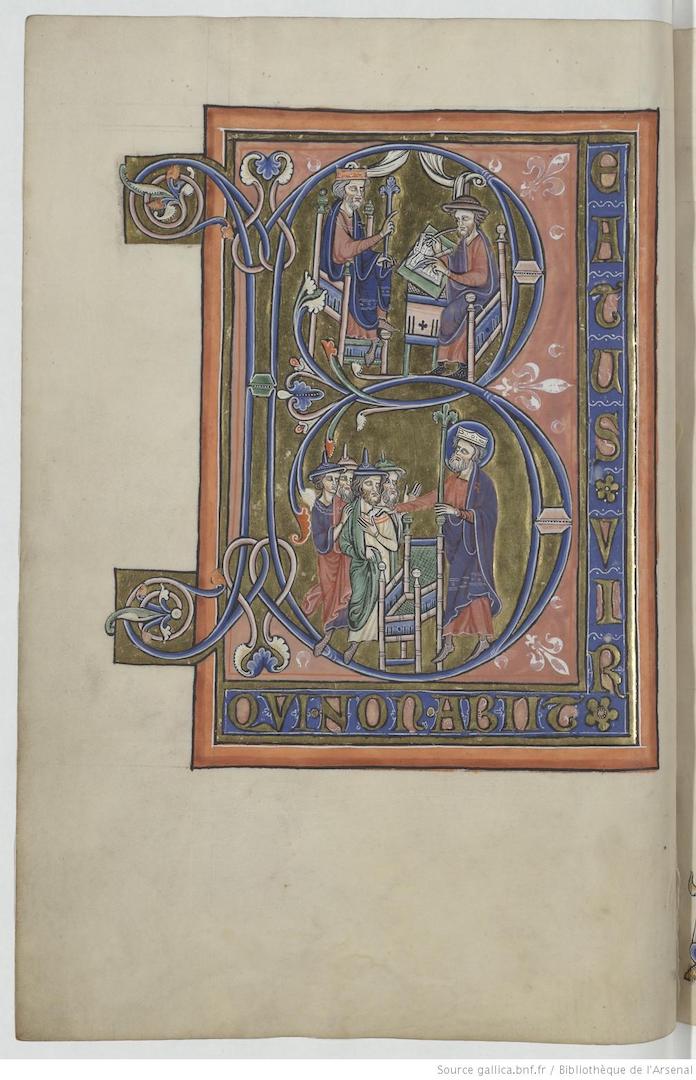 BEATUS VIR
QVI·NON·ABIIT
Source gallica.bnf.fr / Bibliothèque de l'Arsenal